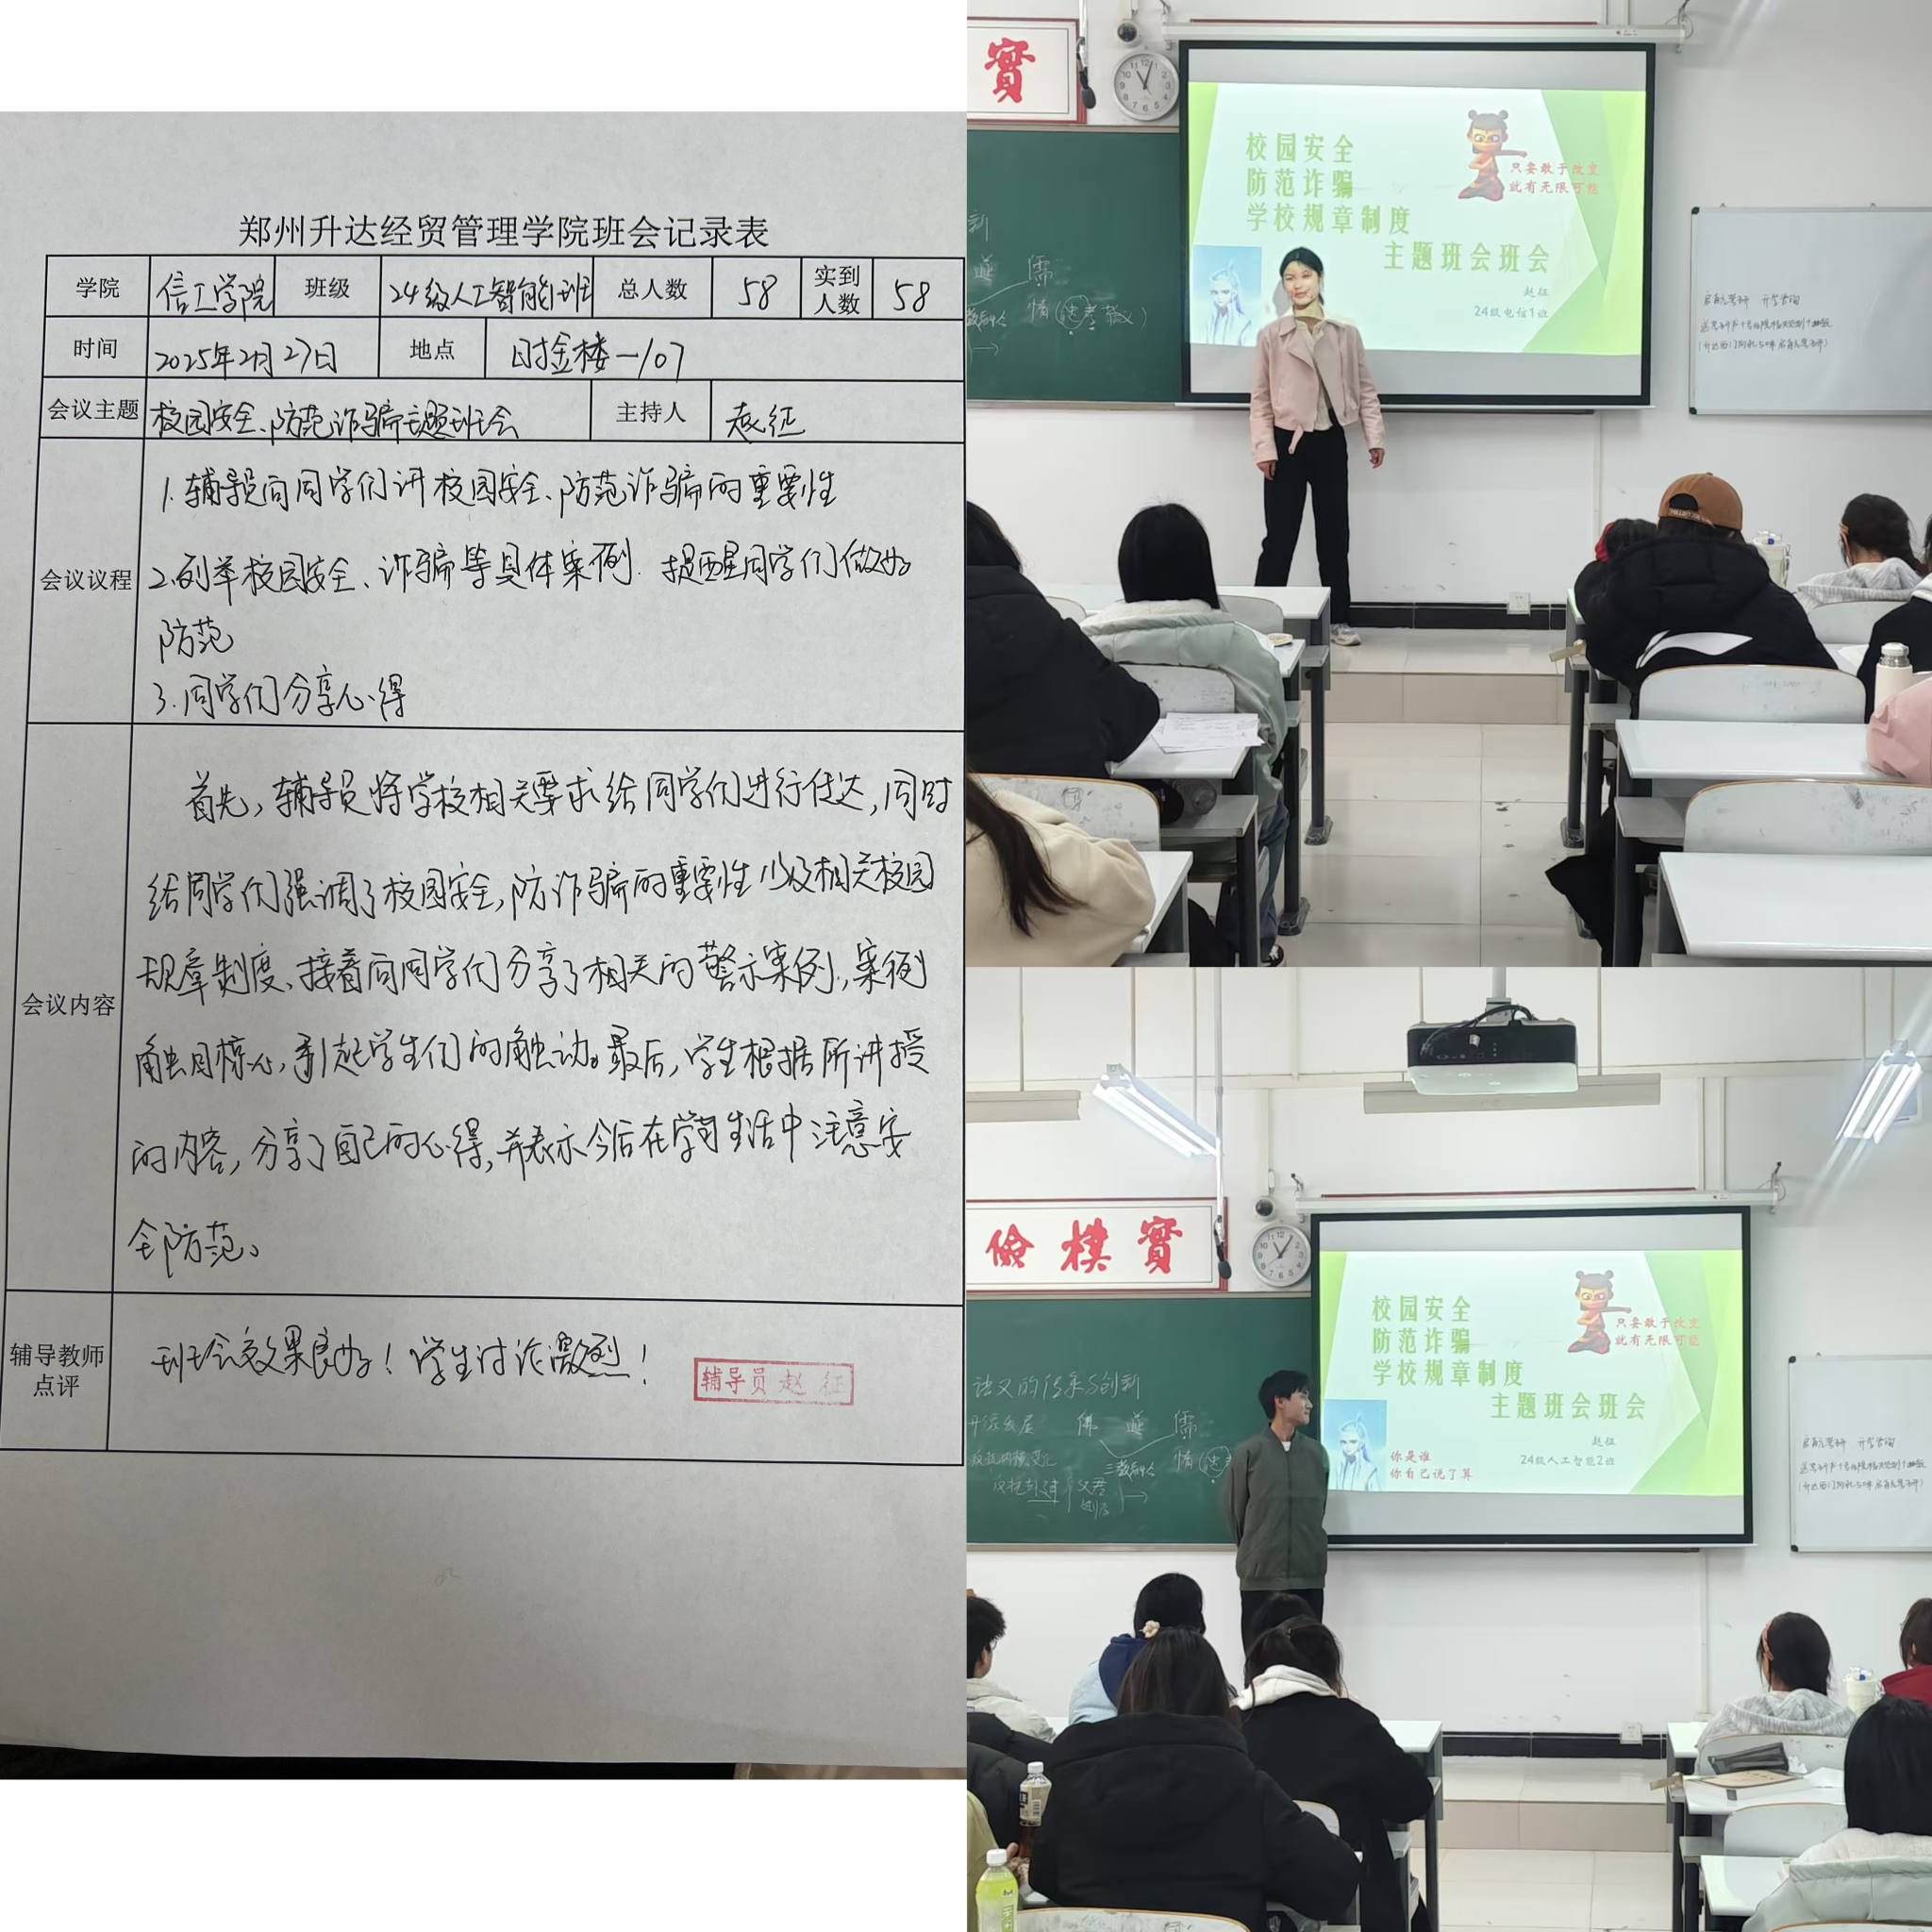 郑州升达经贸管理学院班会记录表
学院 信工学院 班级 24级人工智能1班 总人数 58 实到人数 58
时间 2025年2月27日 地点 时金楼-107
会议主题 校园安全、防范诈骗主题班会 主持人 赵征
会议议程
1.辅导员向同学们讲校园安全、防范诈骗的重要性
2.列举校园安全、诈骗等具体案例.提醒同学们做好
防范
3.同学们分享心得
会议内容
首先,辅导员将学校相关要求给同学们进行传达,同时
给同学们强调了校园安全,防诈骗的重要性以及相关校园
规章制度、接着向同学们分享了相关的警示案例,案例
触目惊心,引起学生们的触动。最后,学生根据所讲授
的内容,分享了自己的心得,并表示今后在学习生活中注意安
全防范。
辅导教师点评
班会效果良好!学生讨论激烈!
辅导员 赵征
實
校园安全
防范诈骗
学校规章制度
主题班会班会
只要敢于改变
就有无限可能
赵征
24级电信1班
新
道 儒
情
儉樸實
校园安全
防范诈骗
学校规章制度
主题班会班会
只要敢于改变
就有无限可能
你是谁
你自己说了算
赵征
24级人工智能2班
的传承与创新
佛 道 儒
三教合一
情